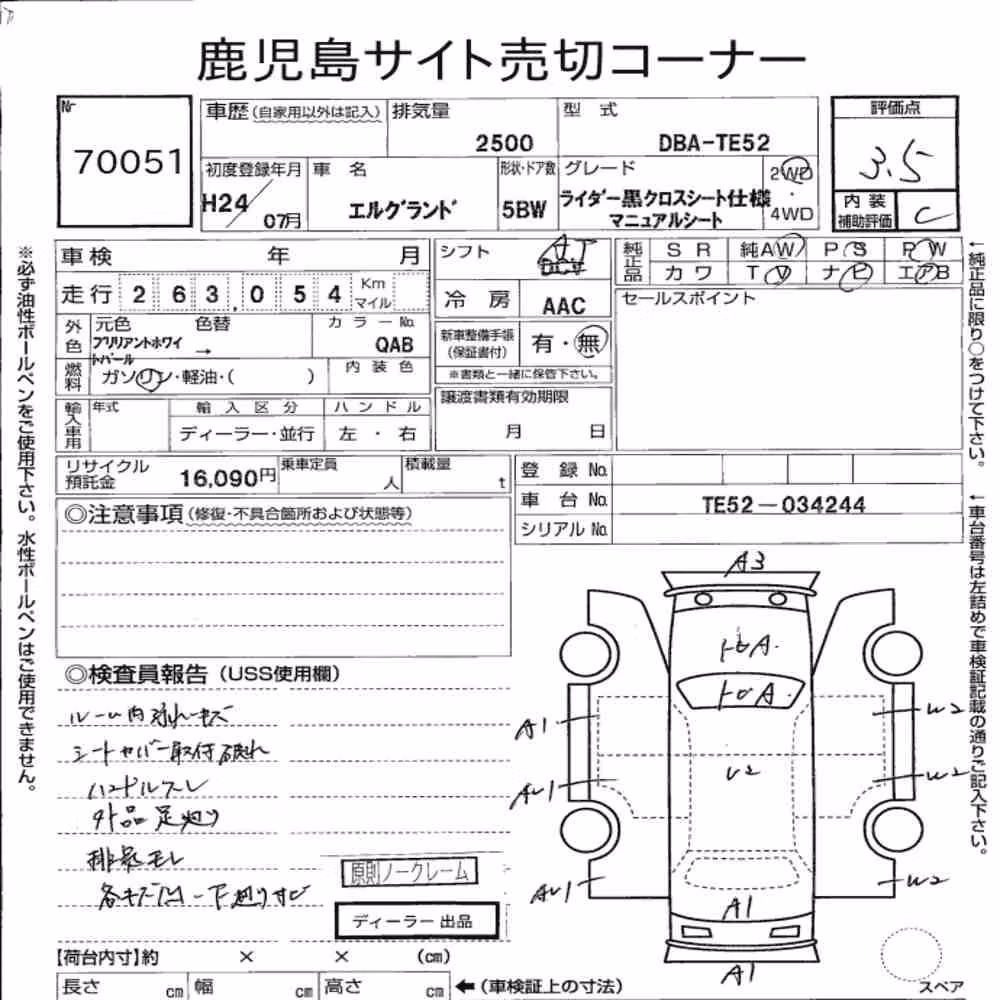 鹿児島サイト売切コーナー
№
70051
車歴(自家用以外は記入)
排気量
2500
型 式
DBA-TE52
評価点
3.5
初度登録年月
H24/07月
車 名
エルグランド
形状・ドア数
5BW
グレード
ライダー黒クロスシート仕様
マニュアルシート
2WD
・
4WD
内装
補助評価
C
車検 年 月
シフト
AT
純正品
SR 純AW PS PW
カワ TV ナビ エアB
走行 263,054 Km
マイル
冷 房
AAC
セールスポイント
外色
元色 色替
ブリリアントホワイ
トパール →
カラー№
QAB
新車整備手帳
(保証書付)
有・無
※書類と一緒に保管下さい。
燃料
ガソリン・軽油・( )
内装色
譲渡書類有効期限
月 日
輸入車用
年式
輸入区分
ディーラー・並行
ハンドル
左・右
リサイクル
預託金
16,090円
乗車定員
人
積載量
t
登 録 №
車 台 №
TE52-034244
シリアル №
◎注意事項(修復・不具合箇所および状態等)
◎検査員報告(USS使用欄)
ルーム内汚れキズ
シートカバー取付破れ
ハンドルスレ
外品足廻り
排気モレ
各キズ凹 下廻りサビ
原則ノークレーム
ディーラー出品
A3
A1
A1
W2
W2
U2
W2
A1
A1
【荷台内寸】約 × × (cm)
長さ cm 幅 cm 高さ cm
←(車検証上の寸法)
スペア
※必ず油性ボールペンをご使用下さい。水性ボールペンはご使用できません。
←純正品に限り○をつけて下さい。
←車台番号は左詰めで車検証記載の通りご記入下さい。